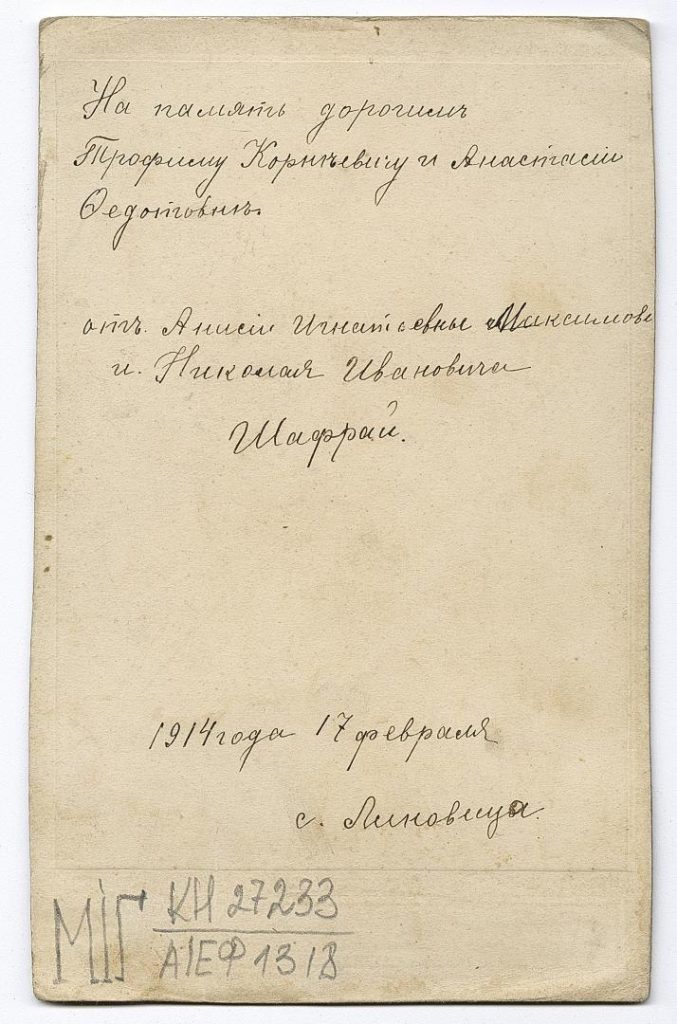 На память дорогимъ
Трофиму Корнѣевичу и Анастасіи
Ѳедотовнѣ.
отъ. Анисіи Игнатьевны Максимово
и. Николая Ивановича
Шафрай.
1914 года 17 февраля
с. Линовица.
МІГ КН 27233
АІЕФ 1318